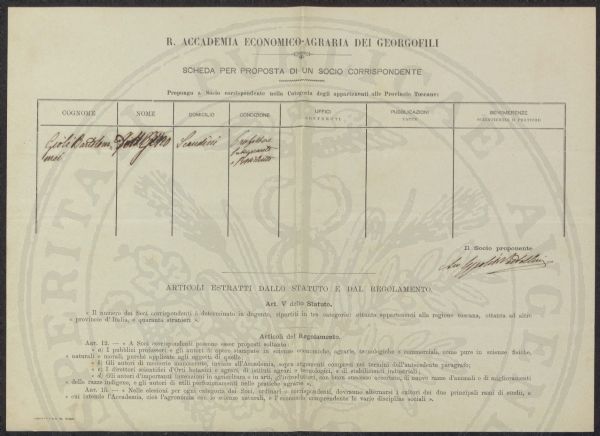 R. ACCADEMIA ECONOMICO-AGRARIA DEI GEORGOFILI
SCHEDA PER PROPOSTA DI UN SOCIO CORRISPONDENTE
Propongo a Socio corrispondente nella Categoria degli appartenenti alle Provincie Toscane:
COGNOME NOME DOMICILIO CONDIZIONE UFFICI PUBBLICAZIONI BENEMERENZE
SOSTENUTI FATTE SCIENTIFICHE O PRATICHE
Scandicci
Il Socio proponente
ARTICOLI ESTRATTI DALLO STATUTO E DAL REGOLAMENTO.
Art. V dello Statuto.
« Il numero dei Soci corrispondenti è determinato in dugento, ripartiti in tre categorie: ottanta appartenenti alla regione toscana, ottanta ad altre
« provincie d'Italia, e quaranta stranieri ».
Articoli del Regolamento.
ART. 12. — « A Soci corrispondenti possono esser proposti soltanto:
« a) I pubblici professori e gli autori d'opere stampate in scienze economiche, agrarie, tecnologiche e commerciali, come pure in scienze fisiche,
« naturali e morali, purchè applicate agli oggetti di quelle;
« b) Gli autori di memorie manoscritte inviate all'Accademia, sopra argomenti compresi nei termini dell'antecedente paragrafo;
« c) I direttori scientifici d'Orti botanici e agrari, di istituti agrari e tecnologici, e di stabilimenti industriali;
« d) Gli autori d'importanti invenzioni in agricoltura e in arti, gl'introduttori, con buon successo accertato, di nuove razze d'animali e di miglioramenti
« delle razze indigene, e gli autori di utili perfezionamenti nelle pratiche agrarie ».
« Nelle elezioni per ogni categoria dei Soci, ordinari e corrispondenti, dovranno alternarsi i cultori dei due principali rami di studi, a
« cui intende l'Accademia, cioè l'agronomia con le scienze naturali, e l'economia comprendente le varie discipline sociali ».